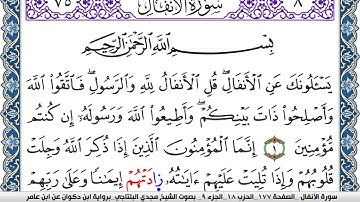 ٧٥ سُورَةُ الْأَنفَالِ ٨
بِسْمِ اللَّهِ الرَّحْمَٰنِ الرَّحِيمِ
يَسْـَٔلُونَكَ عَنِ الْأَنفَالِ ۖ قُلِ الْأَنفَالُ لِلَّهِ وَالرَّسُولِ ۖ فَاتَّقُوا اللَّهَ
وَأَصْلِحُوا ذَاتَ بَيْنِكُمْ ۖ وَأَطِيعُوا اللَّهَ وَرَسُولَهُ إِن كُنتُم
مُّؤْمِنِينَ ١ إِنَّمَا الْمُؤْمِنُونَ الَّذِينَ إِذَا ذُكِرَ اللَّهُ وَجِلَتْ
قُلُوبُهُمْ وَإِذَا تُلِيَتْ عَلَيْهِمْ ءَايَٰتُهُ زَادَتْهُمْ إِيمَٰنًا وَعَلَىٰ رَبِّهِمْ
سورة الأنفال _ الصفحة ١٧٧ _ الحزب ١٨ _ الجزء ٩ _ بصوت الشيخ مجدي البلتاجي _ برواية ابن ذكوان عن ابن عامر